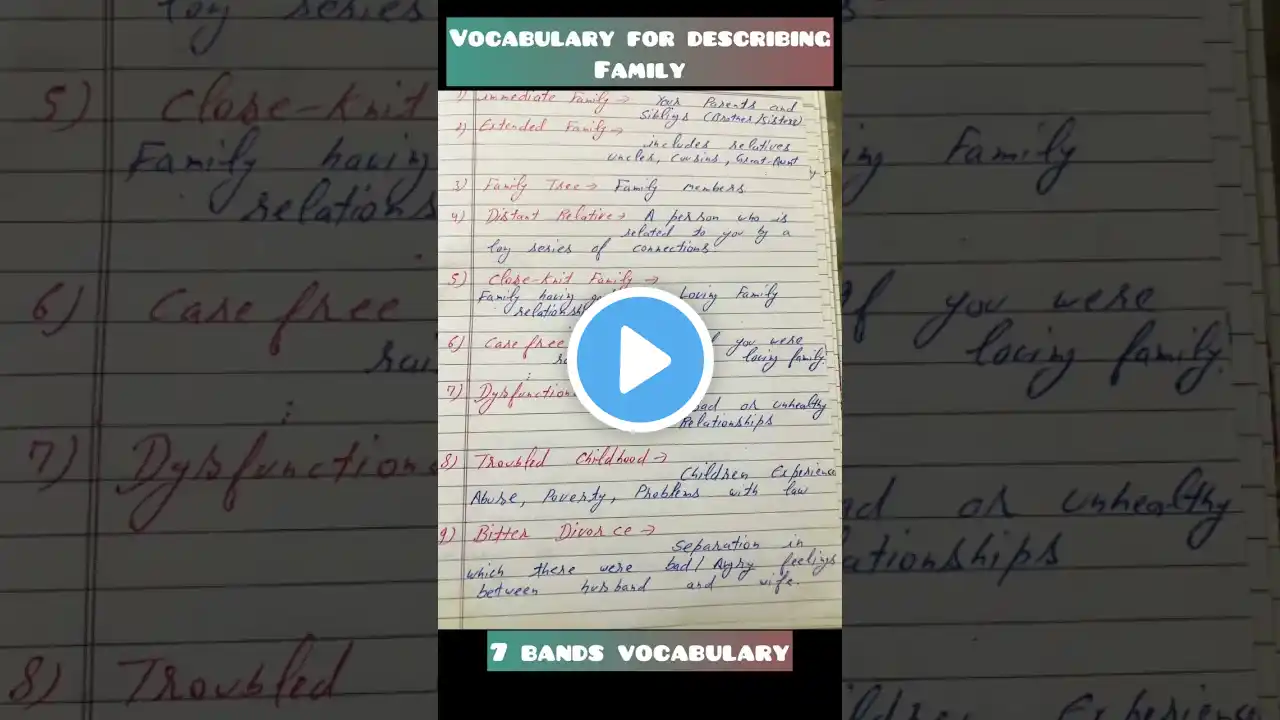 VOCABULARY FOR DESCRIBING
FAMILY
1) Immediate Family → Your Parents and
Sibligs (Brother/Sisters)
2) Extended Family →
includes relatives
uncles, cousins, Great-Aunt
3) Family Tree → Family members
4) Distant Relative → A person who is
related to you by a
log series of connections.
5) Close-Knit Family →
Family having Loving Family
relationship
6) Carefree you were
loving family.
7) Dysfunction
bad or unhealthy
Relationships
8) Troubled Childhood →
Children Experience
Abuse, Poverty, Problems with law
9) Bitter Divorce →
Separation in
which there were bad/Angry feelings
between husband and wife.
7 BANDS VOCABULARY
log series
5) Close-Knit
Family having
relations
6) Carefree
7) Dysfunction
8) Troubled
Family
If you were
loving family.
or unhealthy
Experience